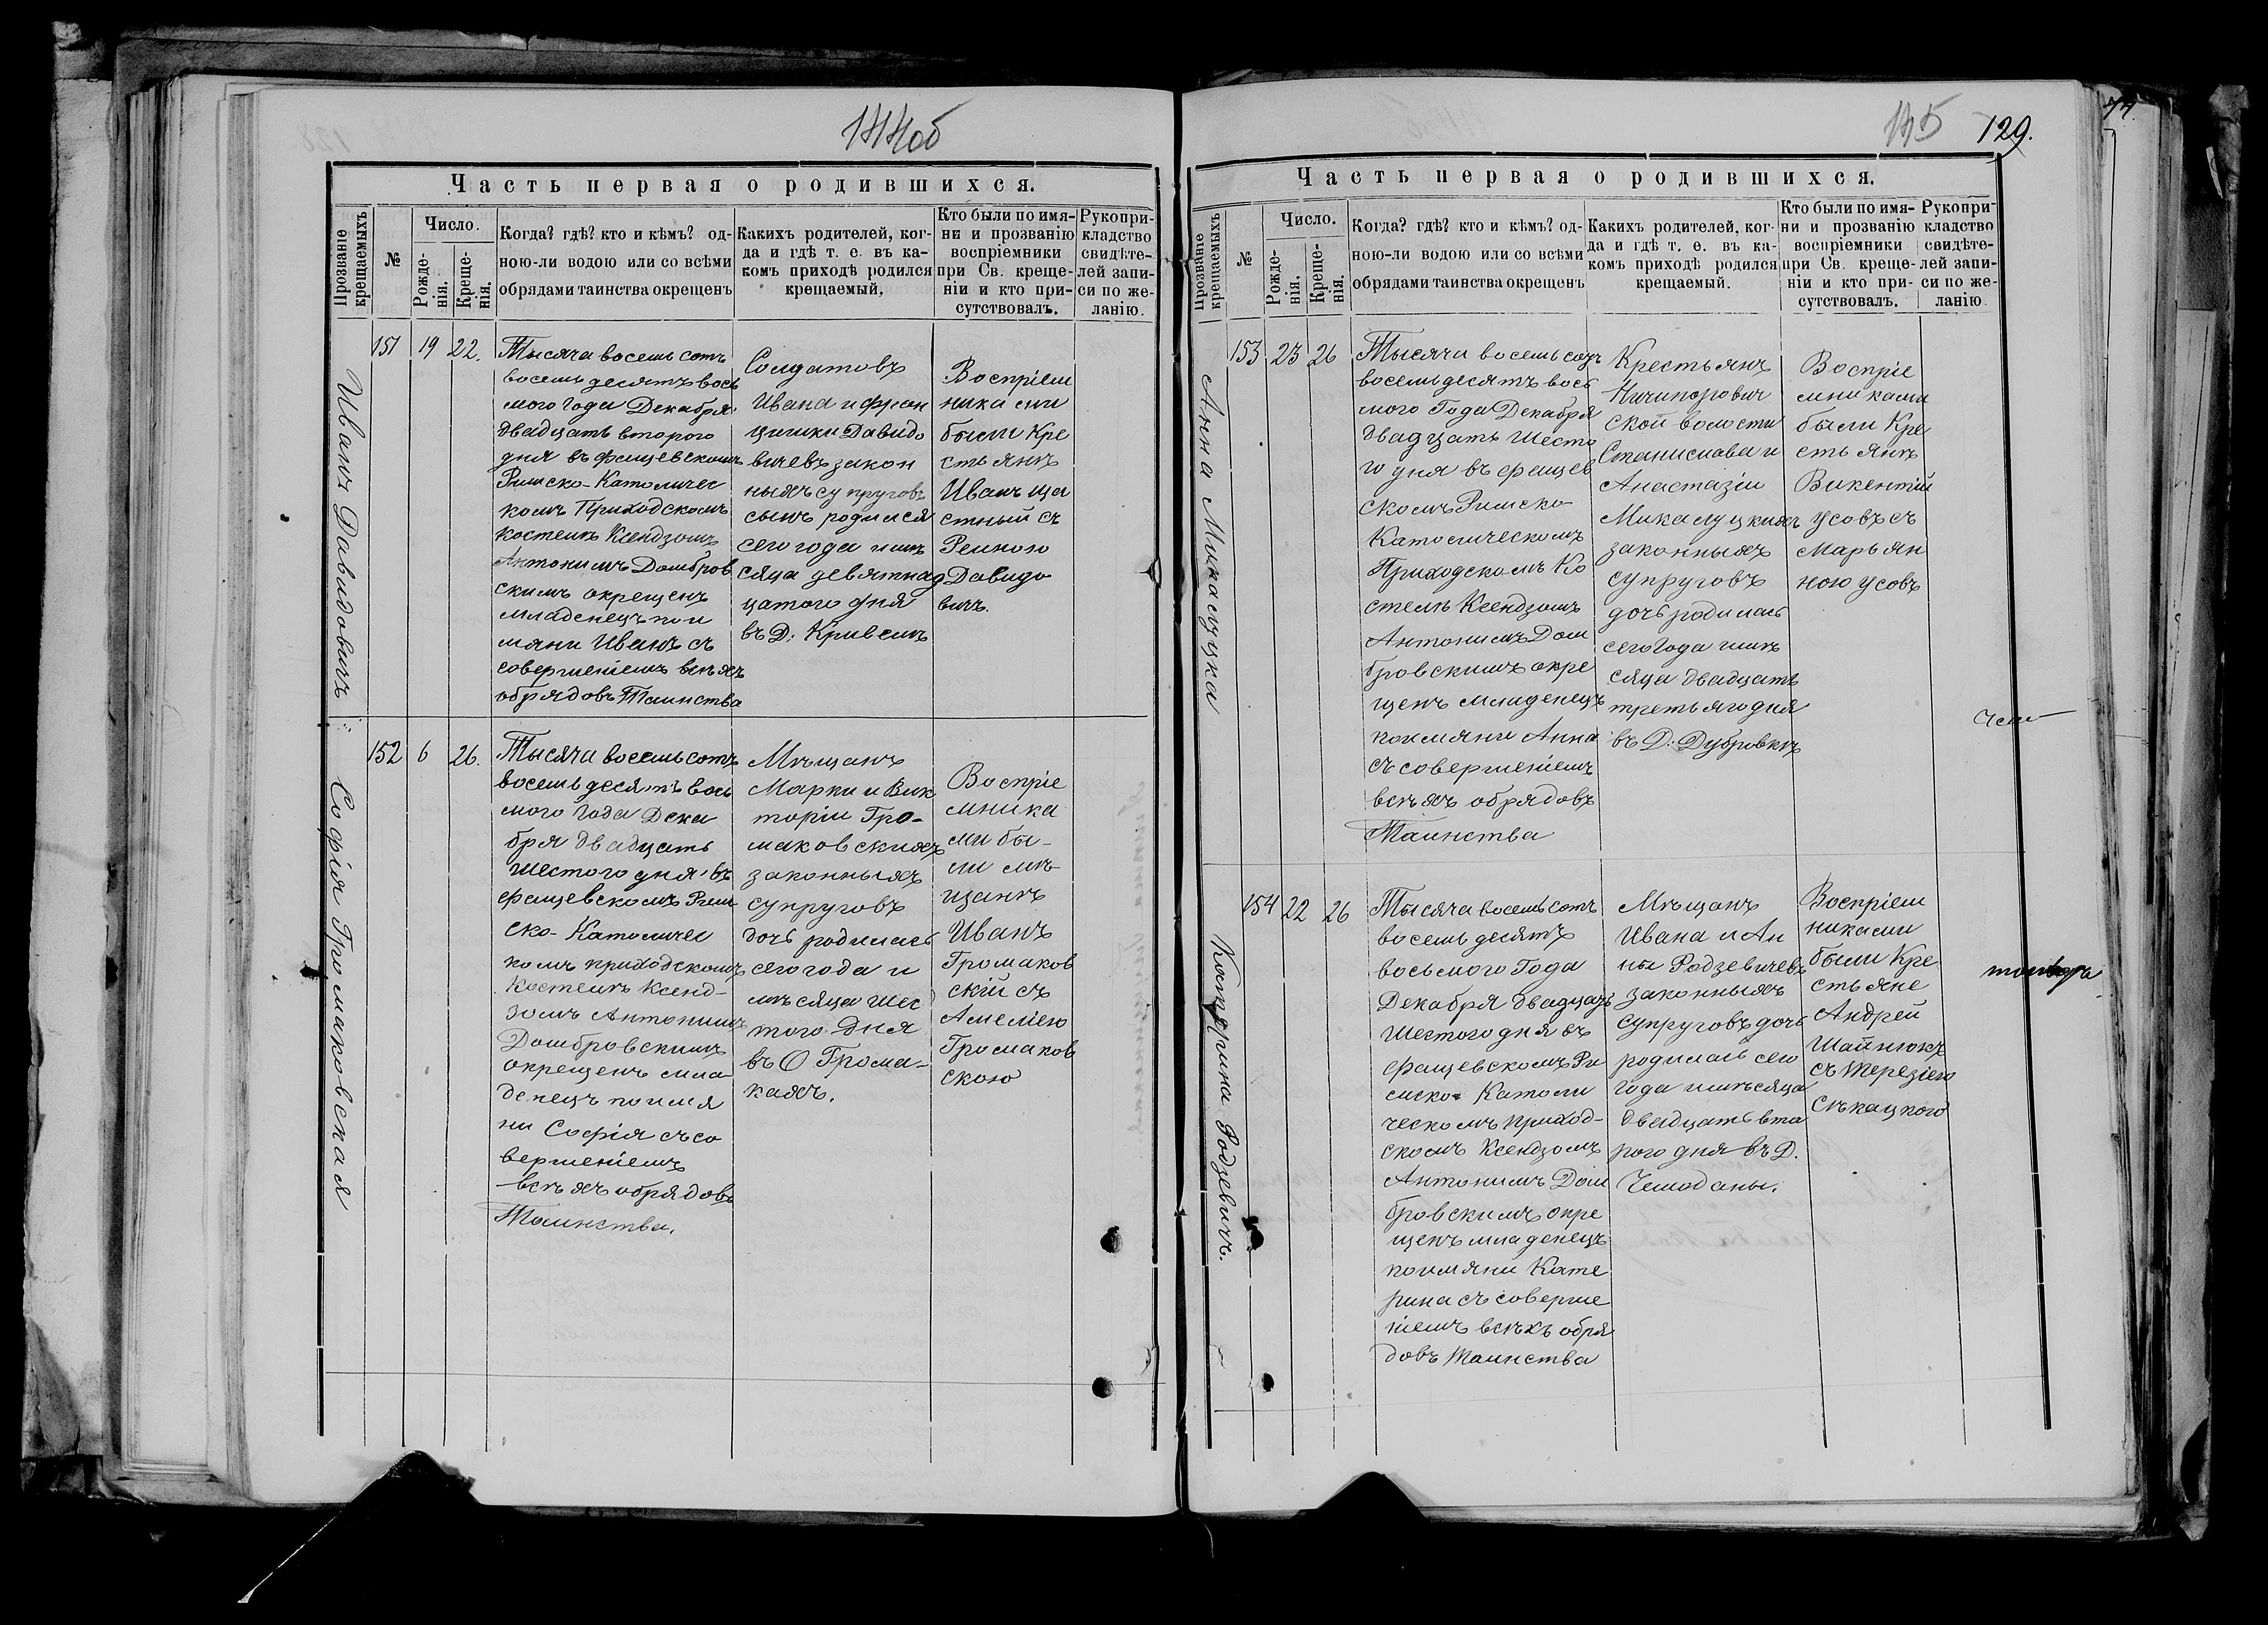 144об
Часть первая о родившихся.
Прозваніе крещаемыхъ
№
Число.
Рожденія.
Крещенія.
Когда? гдѣ? кто и кѣмъ? од-
ною-ли водою или со всѣми
обрядами таинства окрещенъ
Какихъ родителей, ког-
да и гдѣ т. е. въ ка-
комъ приходѣ родился
крещаемый,
Кто были по имя-
ни и прозванію
воспріемники
при Св. креще-
ніи и кто при-
сутствовалъ.
Рукопри-
кладство
свидѣте-
лей запи-
си по же-
ланію.
Иванъ Давидовичъ
151 19 22.
Тысяча восемь сотъ
восемьдесятъ вось
мого Года Декабря
двадцать второго
дня въ Фащевскомъ
Римско-Католичес
комъ Приходскомъ
костелѣ Ксендзомъ
Антонимъ Домбров
скимъ окрещенъ
младенецъ по и
мяни Иванъ съ
совершеніемъ всѣхъ
обрядовъ Таинства
Солдатовъ
Ивана и Фран
цишки Давидо
вичевъ закон
ныхъ супруговъ
сынъ родился
сего года и мѣ
сяца девятнад
цатого дня
въ Д. Кривелѣ
Воспріем
никами
были Кре
стьянѣ
Иванъ Ща
стный съ
Релиною
Давидо
вичъ.
Софія Громаковская
152 6 26.
Тысяча восемь сотъ
восемьдесятъ вось
мого Года Дека
бря двадцать
шестого дня въ
Фащевскомъ Рим
ско-Католичес
комъ приходскомъ
Костелѣ Ксенд-
зомъ Антонимъ
Домбровскимъ
окрещенъ мла-
денецъ по имя
ни Софія съ со
вершеніемъ
всѣхъ обрядовъ
Таинства.
Мѣщанъ
Марки и Вик
торіи Гро-
маковскихъ
законныхъ
супруговъ
дочь родилась
сего года и
мѣсяца шес
того дня
въ О Грома-
кахъ.
Воспріе
мника
ми бы-
ли мѣ
щанѣ
Иванъ
Громаков
скій съ
Амеліею
Громаков
скою
145 129.
Часть первая о родившихся.
Прозваніе крещаемыхъ
№
Число.
Рожденія.
Крещенія.
Когда? гдѣ? кто и кѣмъ? од-
ною-ли водою или со всѣми
обрядами таинства окрещенъ
Какихъ родителей, ког-
да и гдѣ т. е. въ ка-
комъ приходѣ родился
крещаемый.
Кто были по имя-
ни и прозванію
воспріемники
при Св. креще-
ніи и кто при-
сутствовалъ.
Рукопри-
кладство
свидѣте-
лей запи-
си по же-
ланію.
Анна Микалуцка
153 23 26
Тысяча восемь сотъ
восемьдесятъ вось
мого Года Декабря
двадцать шесто
го дня въ Фащев
скомъ Римско
Католическомъ
Приходскомъ Ко
стелѣ Ксендзомъ
Антонимъ Дом
бровскимъ окре
щенъ младенецъ
по имяни Анна
съ совершеніемъ
всѣхъ обрядовъ
Таинства
Крестьянъ
Ничипорович
ской волости
Станислава и
Анастазіи
Микалуцкихъ
законныхъ
супруговъ
дочь родилась
сего Года и мѣ
сяца двадцать
третьяго дня
въ Д. Дубровкѣ
Воспріе
мниками
были Кре
стьянѣ
Викентій
Усовъ съ
Марьян
ною Усовъ
Катерина Родзевичъ.
154 22 26
Тысяча восемь сотъ
восемьдесятъ
восьмого Года
Декабря двадцать
шестого дня въ
Фащевскомъ Ри
мско-Католи
ческомъ приход-
скомъ Ксендзомъ
Антонимъ Дом
бровскимъ окре
щенъ младенецъ
по имяни Кате
рина съ соверше
ніемъ всѣхъ обря
довъ Таинства
Мѣщанъ
Ивана и Ан
ны Родзевичевъ
законныхъ
супруговъ дочь
родилась сего
года и мѣсяца
двадцать вта
рого дня въ Д.
Чемоданы.
Воспріем
никами
были Кре
стьяне
Андрей
Шайнюкъ
съ Терезіею
Сѣкацкого